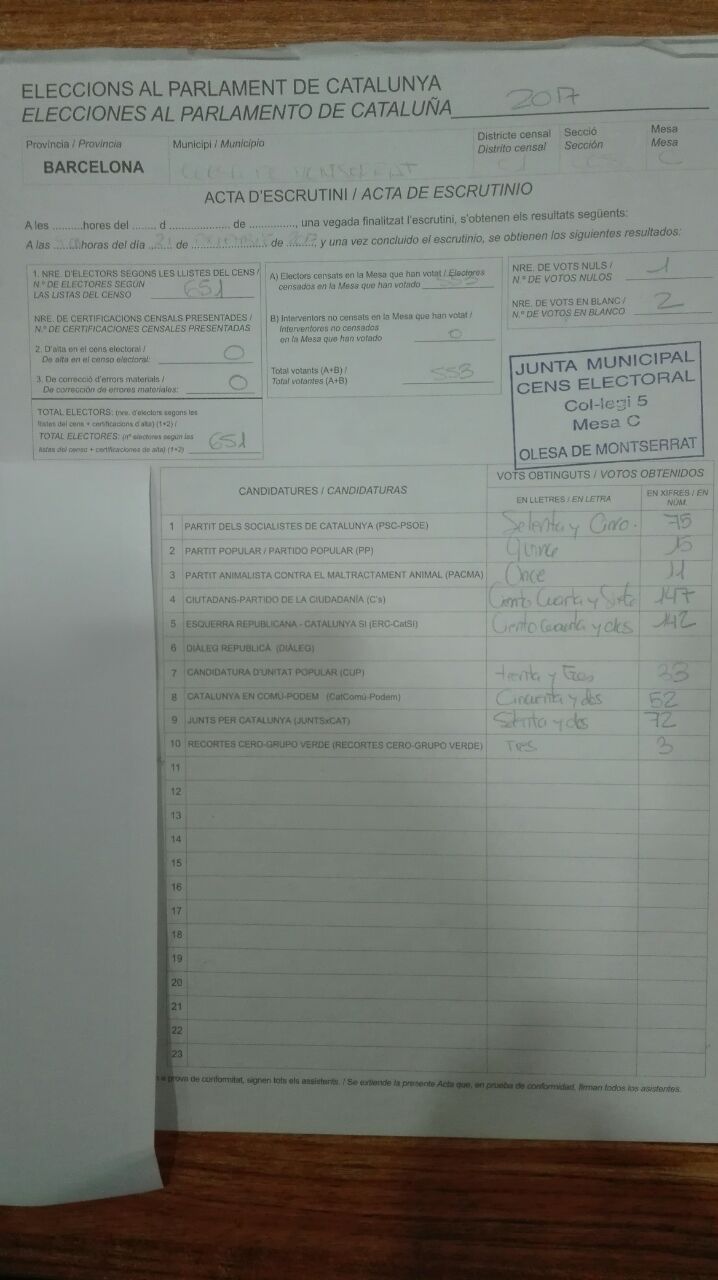 ELECCIONS AL PARLAMENT DE CATALUNYA
ELECCIONES AL PARLAMENTO DE CATALUÑA 2017
Província / Provincia
BARCELONA
Municipi / Municipio
OLESA DE MONTSERRAT
Districte censal
Distrito censal
Secció
Sección
Mesa
Mesa
C
ACTA D'ESCRUTINI / ACTA DE ESCRUTINIO
A les ..........hores del ........ d ..................... de .............., una vegada finalitzat l'escrutini, s'obtenen els resultats següents:
A las ........horas del día 21 de DICIEMBRE de 2017, y una vez concluido el escrutinio, se obtienen los siguientes resultados:
1. NRE. D'ELECTORS SEGONS LES LLISTES DEL CENS /
N.º DE ELECTORES SEGÚN
LAS LISTAS DEL CENSO 651
NRE. DE CERTIFICACIONS CENSALS PRESENTADES /
N.º DE CERTIFICACIONES CENSALES PRESENTADAS
2. D'alta en el cens electoral /
De alta en el censo electoral: 0
3. De correcció d'errors materials /
De corrección de errores materiales: 0
TOTAL ELECTORS: (nre. d'electors segons les
llistes del cens + certificacions d'alta) (1+2) /
TOTAL ELECTORES: (nº electores según las
listas del censo + certificaciones de alta) (1+2) 651
A) Electors censats en la Mesa que han votat / Electores
censados en la Mesa que han votado 553
B) Interventors no censats en la Mesa que han votat /
Interventores no censados
en la Mesa que han votado 0
Total votants (A+B) /
Total votantes (A+B) 553
NRE. DE VOTS NULS /
N.º DE VOTOS NULOS 1
NRE. DE VOTS EN BLANC /
N.º DE VOTOS EN BLANCO 2
JUNTA MUNICIPAL
CENS ELECTORAL
Col·legi 5
Mesa C
OLESA DE MONTSERRAT
CANDIDATURES / CANDIDATURAS
VOTS OBTINGUTS / VOTOS OBTENIDOS
EN LLETRES / EN LETRA
EN XIFRES / EN
NÚM.
1 PARTIT DELS SOCIALISTES DE CATALUNYA (PSC-PSOE) Setenta y Cinco. 75
2 PARTIT POPULAR / PARTIDO POPULAR (PP) Quince 15
3 PARTIT ANIMALISTA CONTRA EL MALTRACTAMENT ANIMAL (PACMA) Once 11
4 CIUTADANS-PARTIDO DE LA CIUDADANÍA (C's) Ciento Cuarta y Siete 147
5 ESQUERRA REPUBLICANA - CATALUNYA SI (ERC-CatSí) Ciento Cuarenta y dos 142
6 DIÀLEG REPUBLICÀ (DIÀLEG)
7 CANDIDATURA D'UNITAT POPULAR (CUP) treinta y Tres 33
8 CATALUNYA EN COMÚ-PODEM (CatComú-Podem) Cincuenta y dos 52
9 JUNTS PER CATALUNYA (JUNTSxCAT) Setenta y dos 72
10 RECORTES CERO-GRUPO VERDE (RECORTES CERO-GRUPO VERDE) TRES 3
11
12
13
14
15
16
17
18
19
20
21
22
23
a prova de conformitat, signen tots els assistents. / Se extiende la presente Acta que, en prueba de conformidad, firman todos los asistentes.